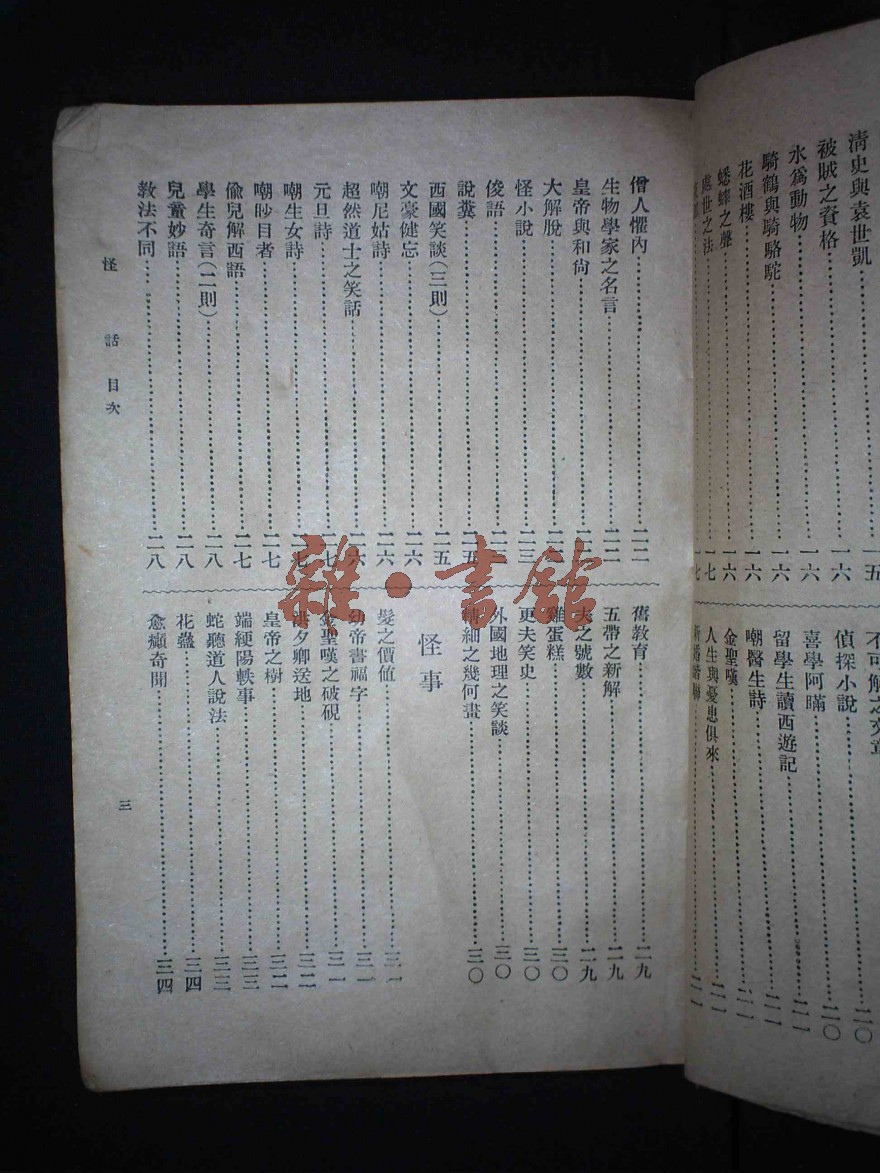 清史與袁世凱
被賊之資格……一六
水爲動物……一六
騎鶴與騎駱駝……一六
花酒樓……一六
蟋蟀之聲……一六
處世之法……一七
不可解之文章……二〇
偵探小說……二〇
喜學阿瞞……二〇
留學生讀西遊記
嘲醫生詩
金聖嘆
人生與憂患俱來
僧人懼內……二二
生物學家之名言……二二
皇帝與和尙
大解脫
怪小說……二三
俊語
說糞
西國笑談(三則)……二五
文豪健忘……二六
嘲尼姑詩……二六
超然道士之笑話……二六
元旦詩
嘲生女詩
嘲眇目者……二七
偸兒解西語……二七
學生奇言(二則)……二八
兒童妙語……二八
教法不同……二八
舊教育……二九
五帶之新解……二九
犬之號數……二九
雞蛋糕……三〇
更夫笑史……三〇
外國地理之笑談……三〇
之幾何畫……三〇
怪事
髮之價値……三一
幼帝書福字……三一
金聖嘆之破硯……三一
夕卿送地……三二
皇帝之樹……三二
端綆陽軼事……三三
蛇聽道人說法……三三
花蠱……三四
愈癲奇聞……三四
怪話目次
三
雜·書館